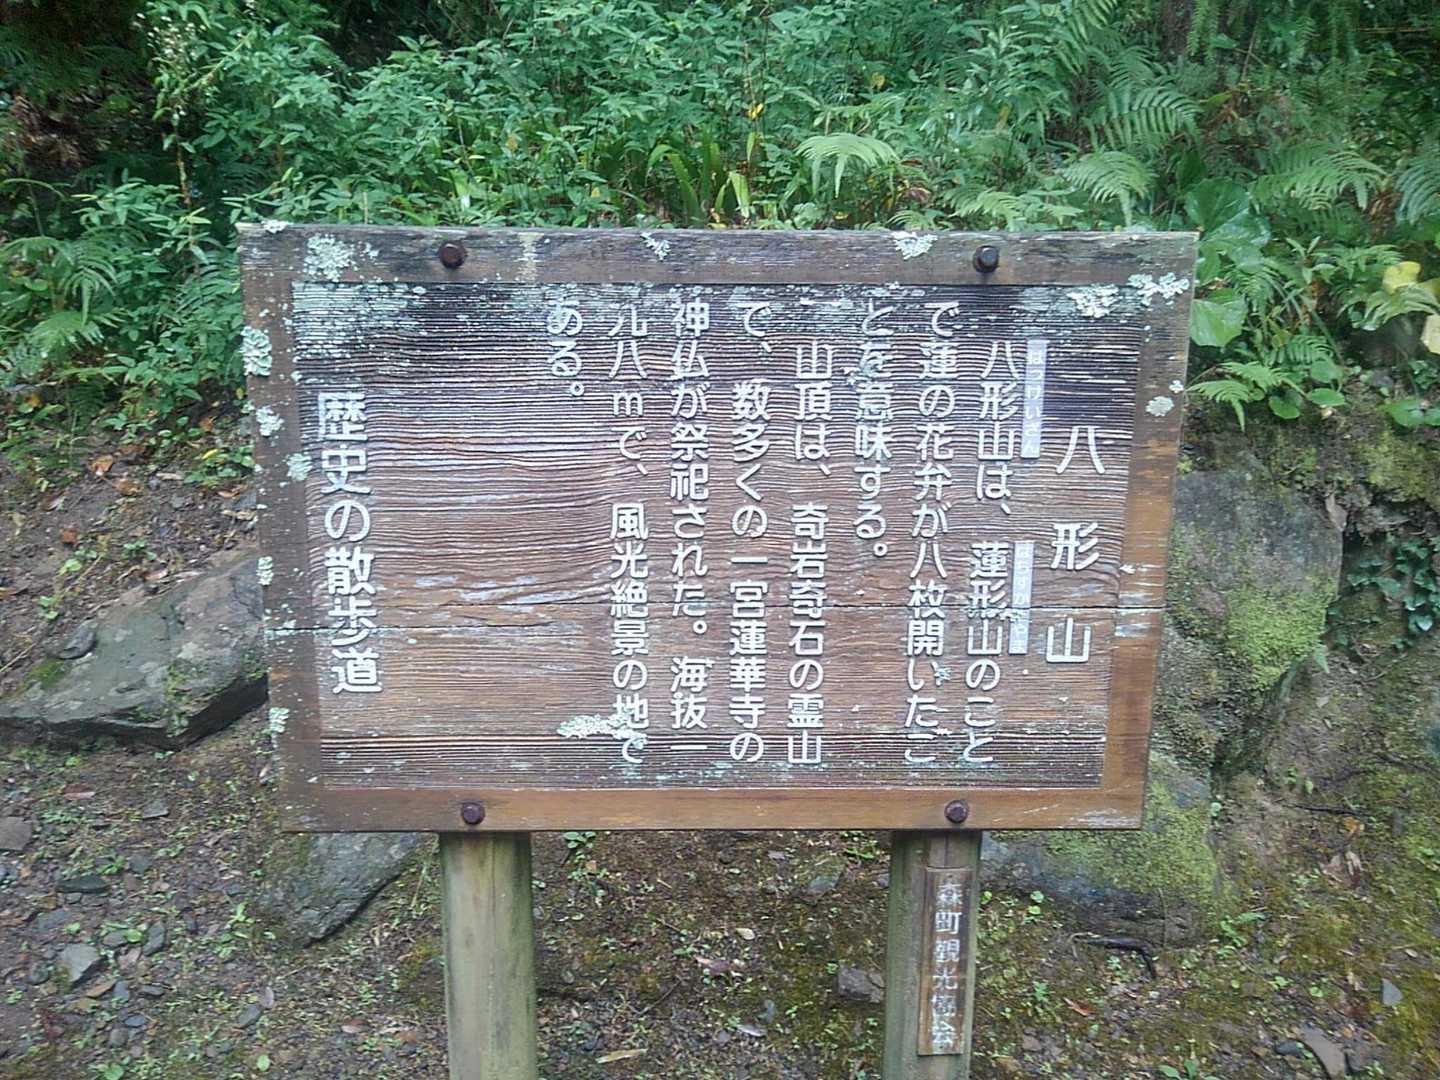 八形山
八形山は、蓮形山のこと
で蓮の花弁が八枚開いたこ
とを意味する。
山頂は、奇岩奇石の霊山
で、数多くの一宮蓮華寺の
神仏が祭祀された。海抜一
九八mで、風光絶景の地で
ある。
歴史の散歩道
森町観光協会